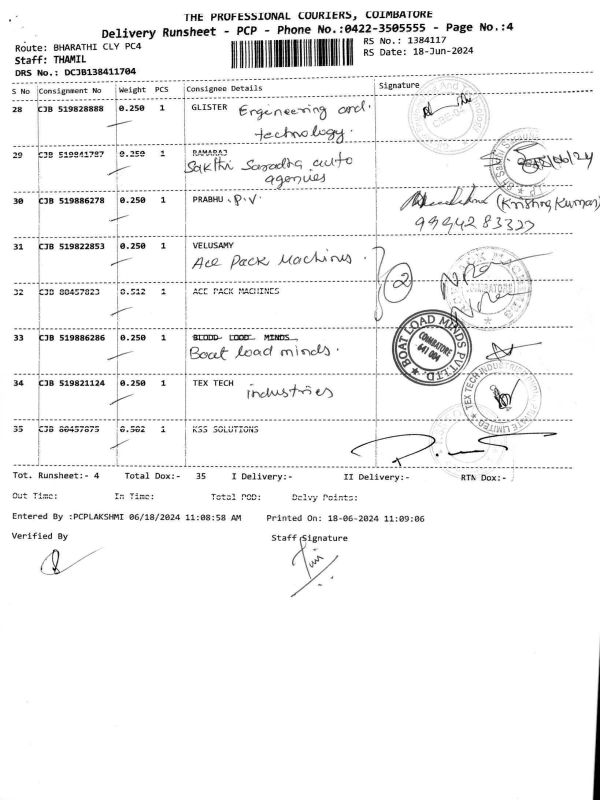 THE PROFESSIONAL COURIERS, COIMBATORE
Delivery Runsheet - PCP - Phone No.:0422-3505555 - Page No.:4
Route: BHARATHI CLY PC4
RS No.: 1384117
Staff: THAMIL
RS Date: 18-Jun-2024
DRS No.: DCJB138411704
S No Consignment No Weight PCS Consignee Details Signature
28 CJB 519828888 0.250 1 GLISTER Engeneering and
technology.
29 CJB 519841787 0.250 1 RAMARAJ
Sakthi Saradha auto
agencies
30 CJB 519886278 0.250 1 PRABHU . P.V. (Krishna Kumar)
31 CJB 519822853 0.250 1 VELUSAMY
Ace Pack Machines. 2
32 CJB 88457823 0.512 1 ACE PACK MACHINES
33 CJB 519886286 0.250 1 BLOOD LOOD MINDS
Boat load minds.
BOAT LOAD MINDS PVT. LTD.
COIMBATORE
641 004
34 CJB 519821124 0.250 1 TEX TECH industries
35 CJB 88457875 0.502 1 KSS SOLUTIONS
Tot. Runsheet:- 4 Total Dox:- 35 I Delivery:- II Delivery:- RTN Dox:-
Out Time: In Time: Total POD: Delvy Points:
Entered By :PCPLAKSHMI 06/18/2024 11:08:58 AM Printed On: 18-06-2024 11:09:06
Verified By Staff Signature